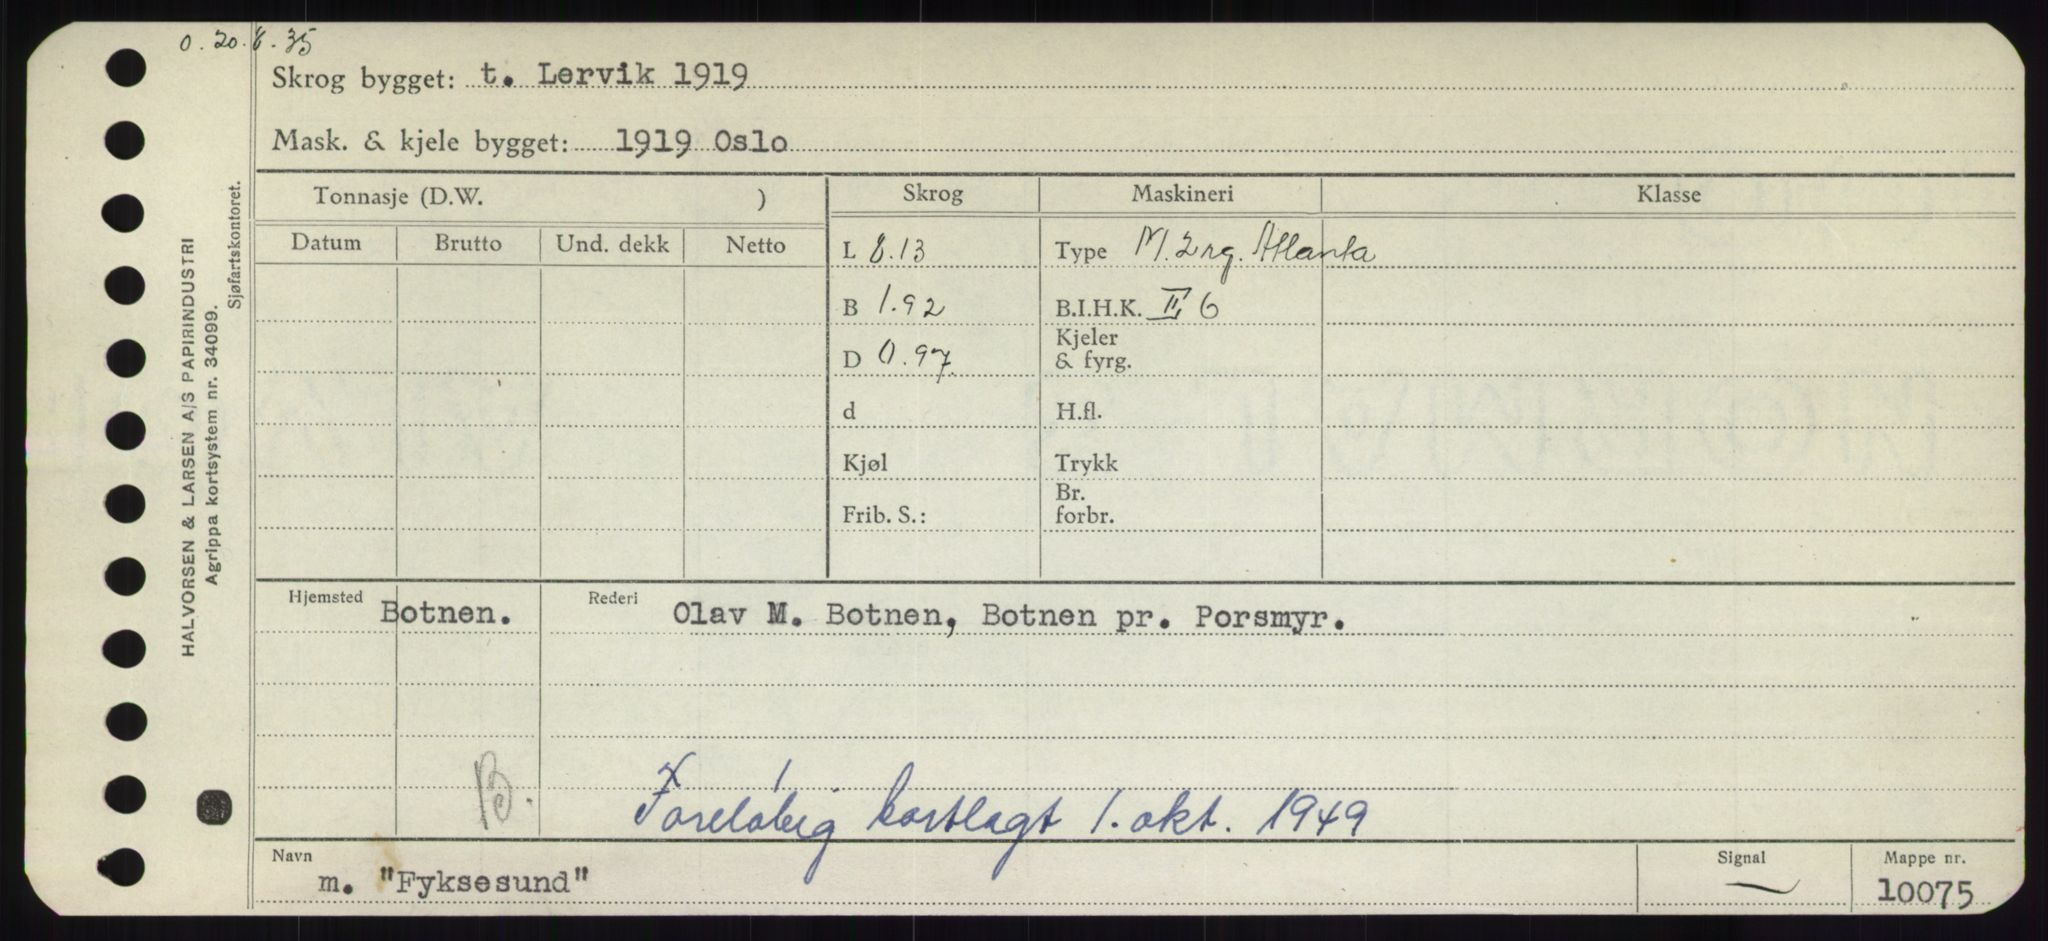 0. 20.8.35
Skrog bygget: t. Lervik 1919
Mask. & kjele bygget: 1919 Oslo
Tonnasje (D.W. )
Skrog
Maskineri
Klasse
Datum
Brutto
Und. dekk
Netto
L 8.13
Type M. 2 rg. Atlanta
B 1.92
B.I.H.K. II 6
D 0.97
Kjeler
& fyrg.
d
H.fl.
Kjøl
Trykk
Frib. S.:
Br.
forbr.
Hjemsted Botnen.
Rederi Olav M. Botnen, Botnen pr. Porsmyr.
B.
Foreløbig kartlagt 1. okt. 1949
Navn
m. "Fyksesund"
Signal
—
Mappe nr.
10075
HALVORSEN & LARSEN A/S PAPIRINDUSTRI
Agrippa kortsystem nr. 34099.
Sjøfartskontoret.